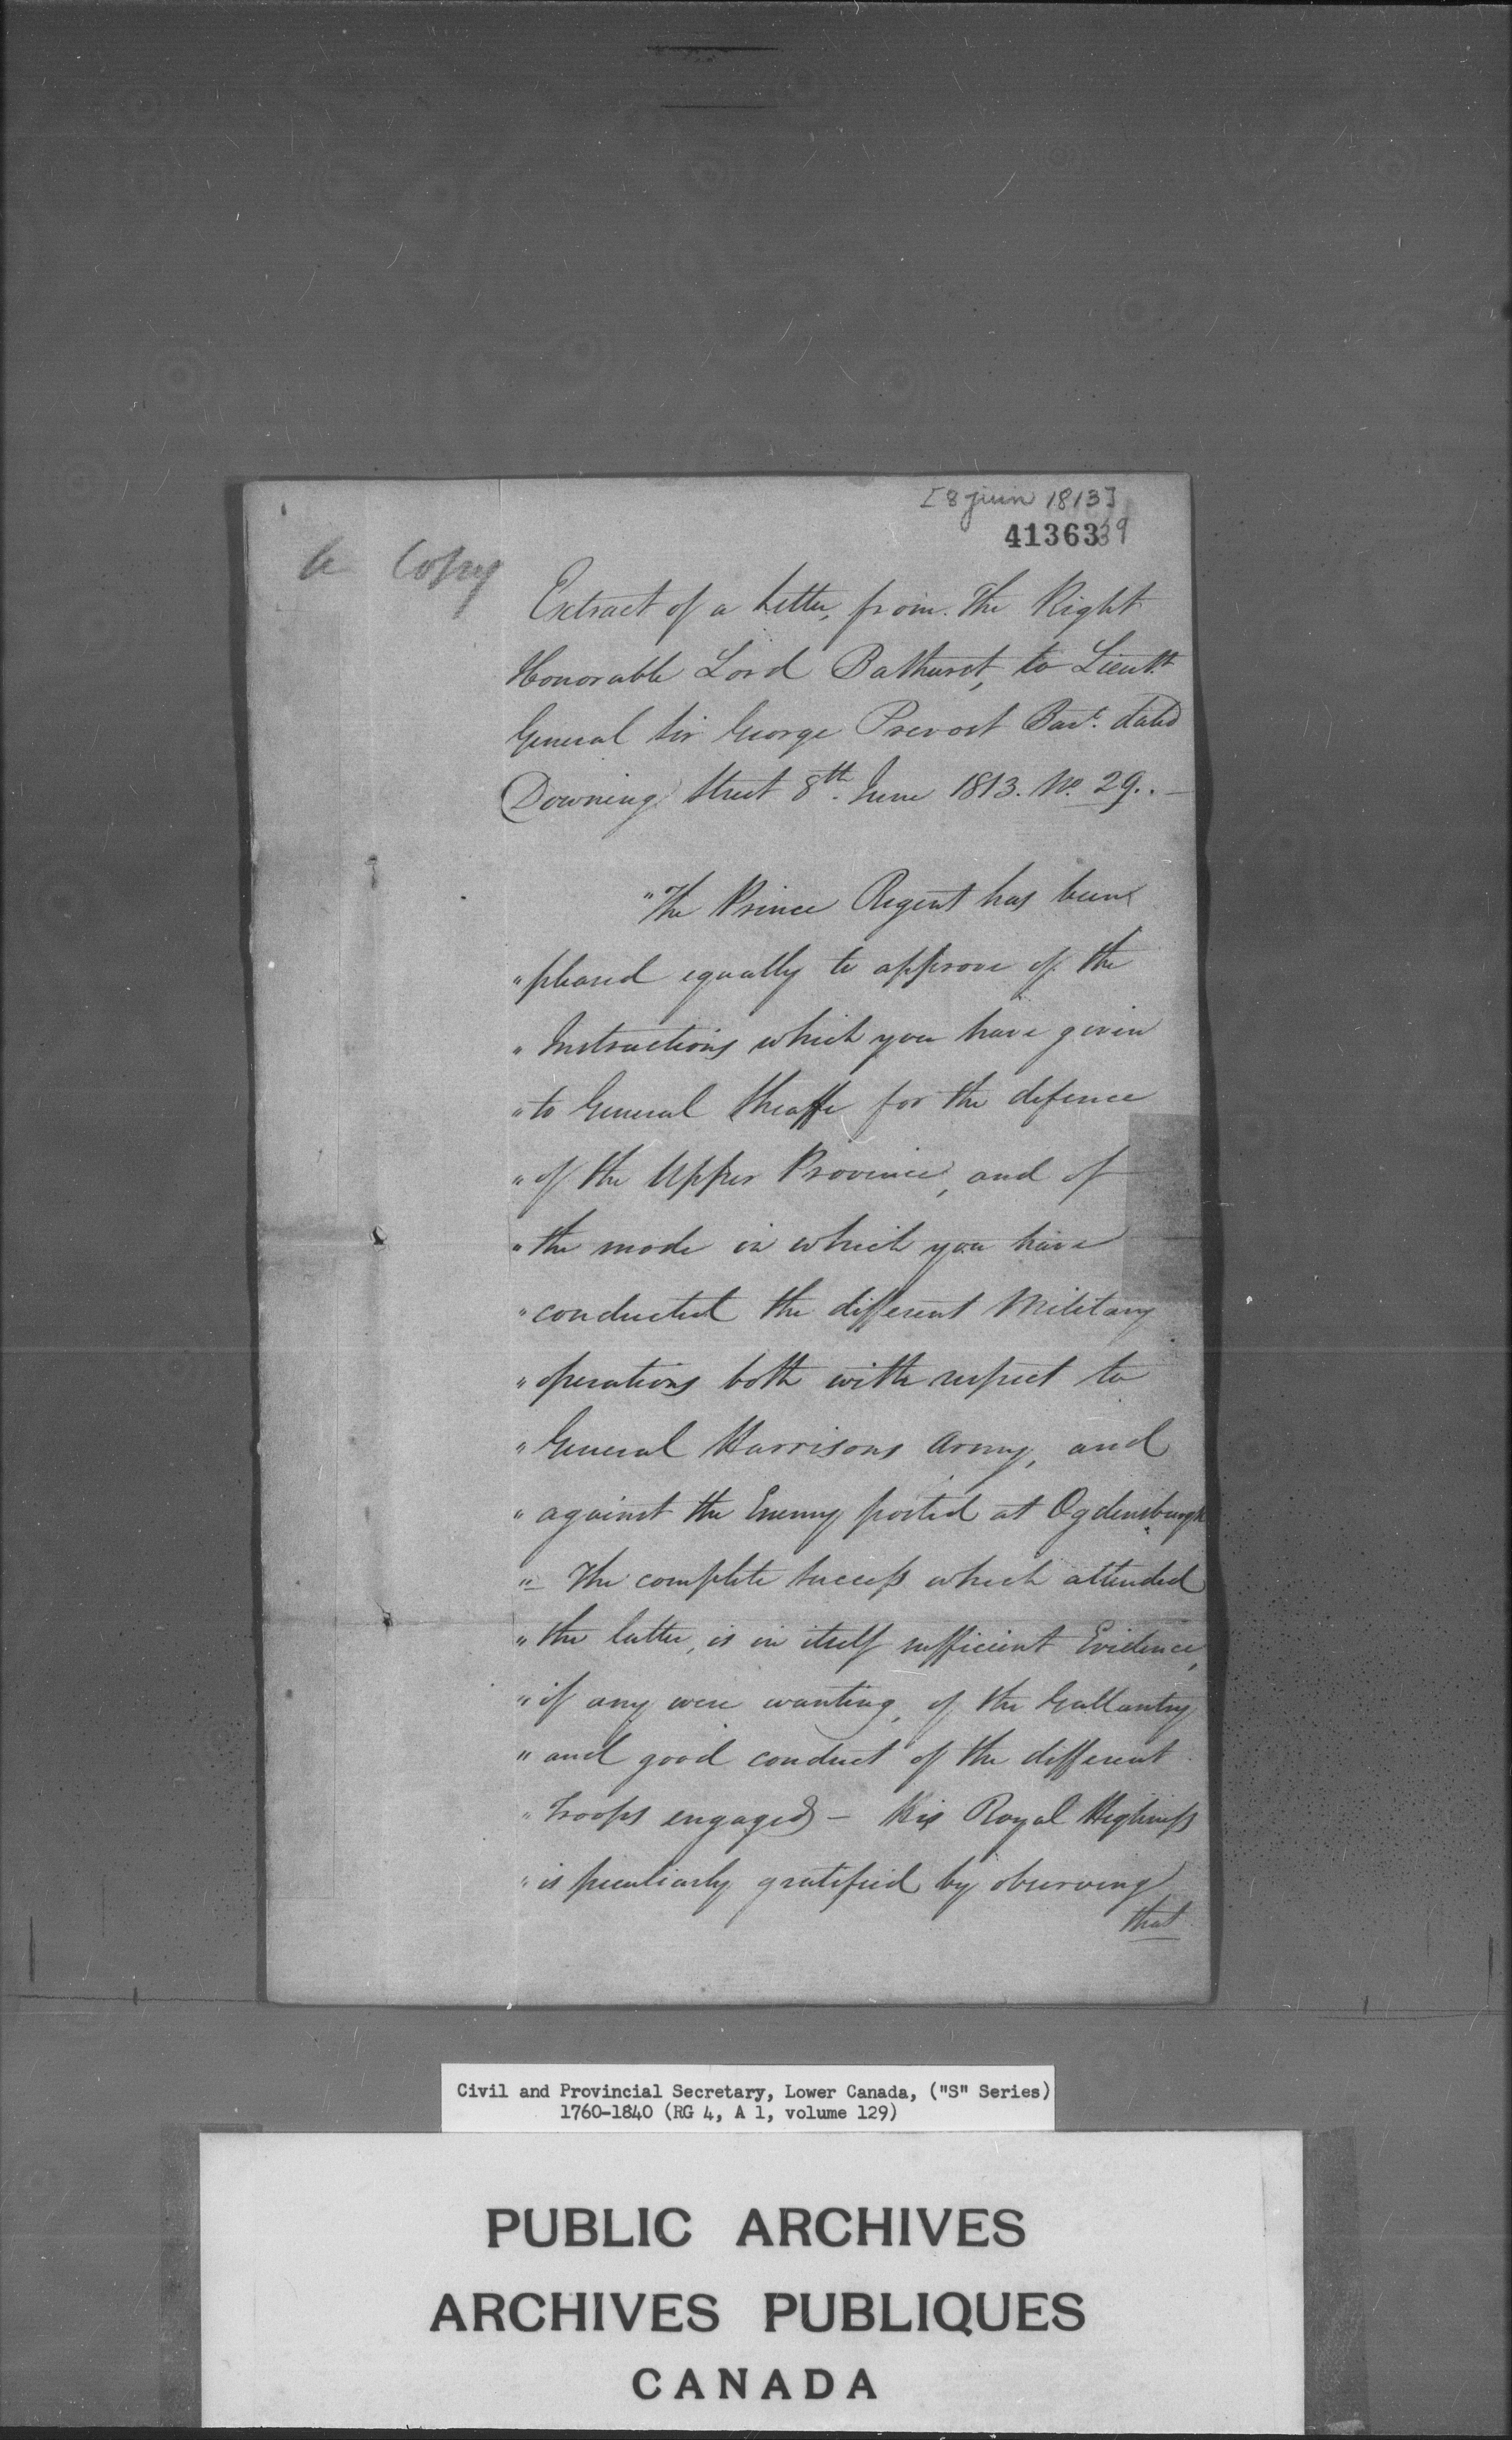 [8 juin 1813]
41363 39
a Copy
Extract of a Letter, from The Right
Honorable Lord Bathurst, to Lieutt.
General Sir George Prevost Bart. dated
Downing Street 8th. June 1813. No. 29. —
"The Prince Regent has been
" pleased equally to approve of the
" Instructions which you have given
" to General Sheaffe for the defence
" of the Upper Province, and of
" the mode in which you have
" conducted the different Military
" operations both with respect to
" General Harrisons Army, and
" against the Enemy posted at Ogdensburgh
" – The complete success which attended
" the latter, is in itself sufficient Evidence,
" if any were wanting, of the Gallantry
" and good conduct of the different
" Troops engaged – His Royal Highness
" is peculiarly gratified by observing
that
Civil and Provincial Secretary, Lower Canada, ("S" Series)
1760-1840 (RG 4, A 1, volume 129)
PUBLIC ARCHIVES
ARCHIVES PUBLIQUES
CANADA